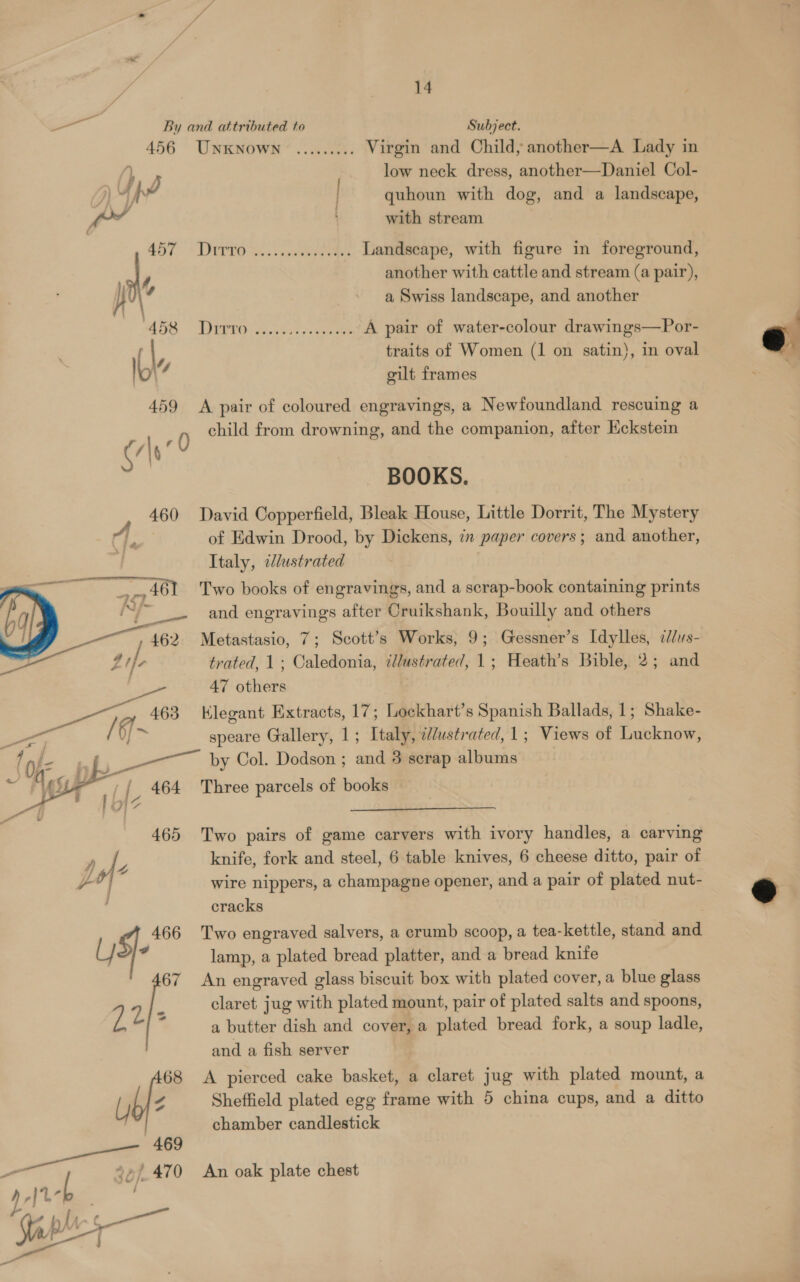 14
By and attributed to Subject.
456 UNKNOWN ......... Virgin and Child, another—A Lady in
low neck dress, another—Daniel Col-
quhoun with dog, and a landscape,
with stream
457 DITTO ............... Landscape, with figure in foreground,
another with cattle and stream (a pair),
a Swiss landscape, and another
458 DITTO ............... A pair of water-colour drawings—Por-
traits of Women (1 on satin), in oval
gilt frames
459 A pair of coloured engravings, a Newfoundland rescuing a
child from drowning, and the companion, after Eckstein
BOOKS.
460 David Copperfield, Bleak House, Little Dorrit, The Mystery
of Edwin Drood, by Dickens, in paper covers; and another,
Italy, illustrated
461 Two books of engravings, and a scrap-book containing prints
and engravings after Cruikshank, Bouilly and others
462 Metastasio, 7; Scott's Works, 9; Gessner's Idylles, illus-
trated, 1; Caledonia, illustrated, 1; Heath's Bible, 2; and
47 others
463 Elegant Extracts, 17; Lockhart's Spanish Ballads, 1; Shake-
speare Gallery, 1; Italy, illustrated, 1; Views of Lucknow,
by Col. Dodson; and 3 scrap albums
464 Three parcels of books
465 Two pairs of game carvers with ivory handles, a carving
knife, fork and steel, 6 table knives, 6 cheese ditto, pair of
wire nippers, a champagne opener, and a pair of plated nut-
cracks
466 Two engraved salvers, a crumb scoop, a tea-kettle, stand and
lamp, a plated bread platter, and a bread knife
467 An engraved glass biscuit box with plated cover, a blue glass
22/- claret jug with plated mount, pair of plated salts and spoons,
a butter dish and cover, a plated bread fork, a soup ladle,
and a fish server
468 A pierced cake basket, a claret jug with plated mount, a
Sheffield plated egg frame with 5 china cups, and a ditto
chamber candlestick
469
470 An oak plate chest